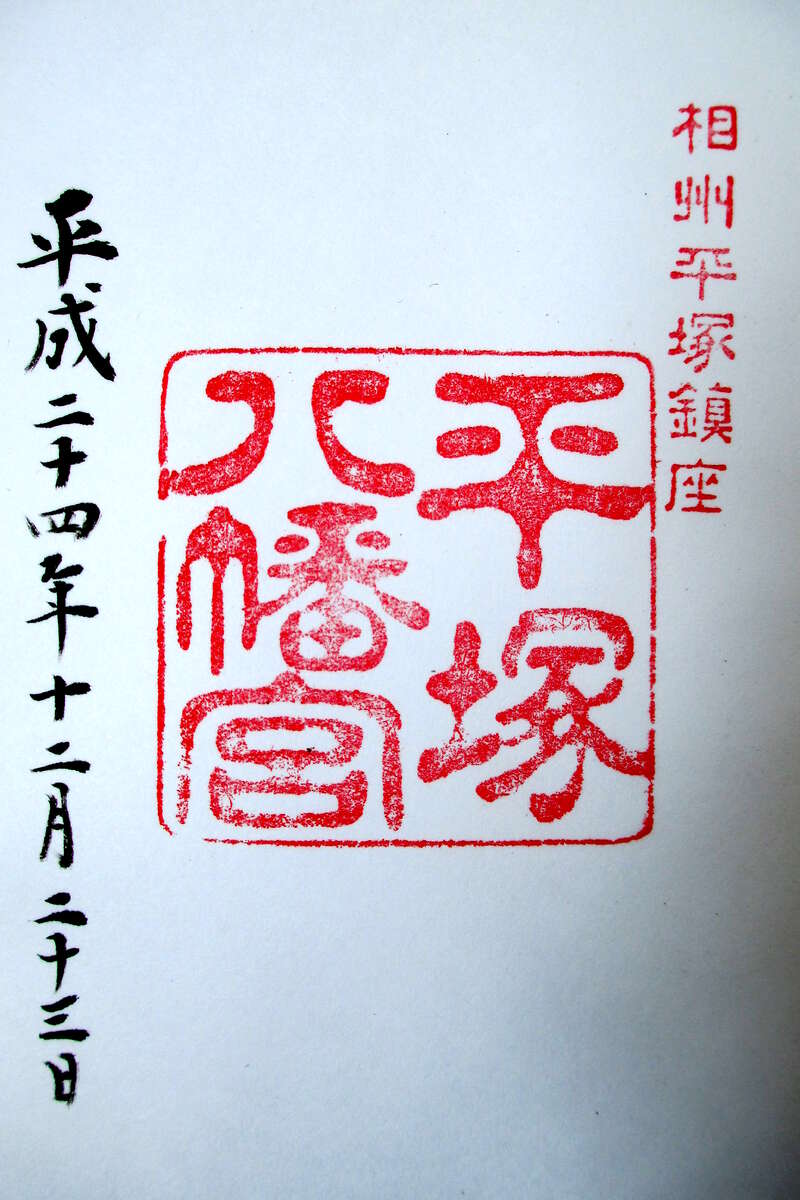 相州平塚鎮座
平塚
八幡宮
平成二十四年十二月二十三日